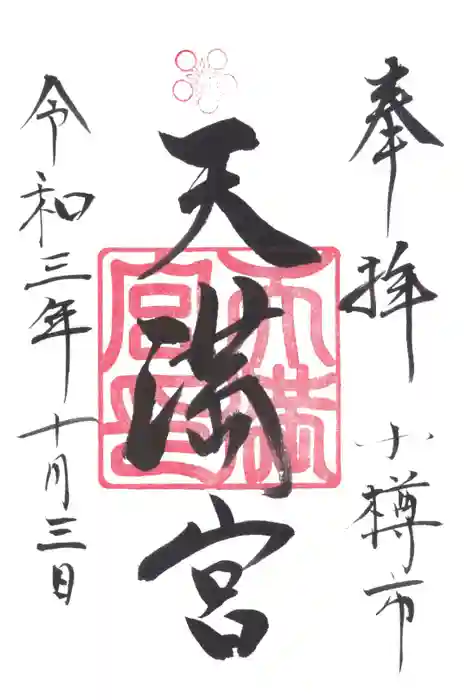 奉拝 小樽市
天満宮
令和三年十月三日
天満宮印